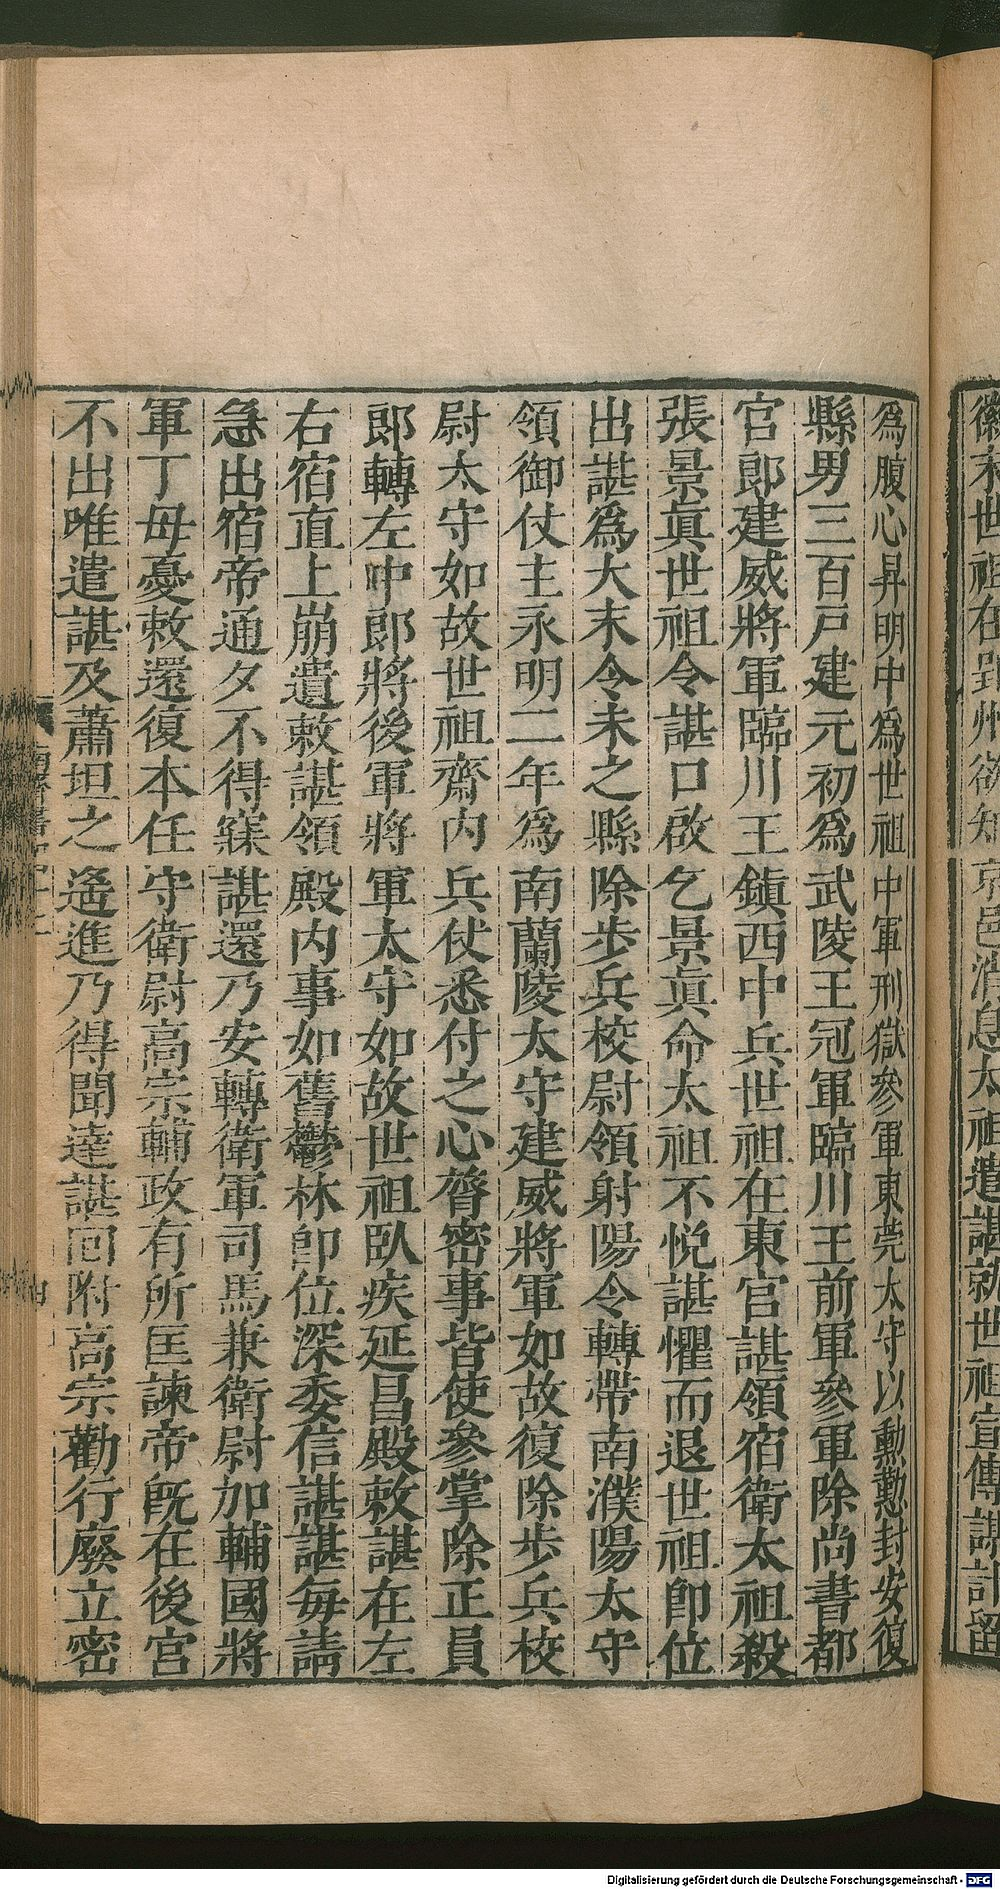 徽末世祖在郢州欲知京邑消息太祖遣諶就世祖宣傳謀計留
爲腹心昇明中爲世祖中軍刑獄參軍東莞太守以勳勤封安復
縣男三百戸建元初爲武陵王冠軍臨川王前軍參軍除尚書都
官郎建威將軍臨川王鎮西中兵世祖在東宫諶領宿衛太祖殺
張景眞世祖令諶口啟乞景眞命太祖不悅諶懼而退世祖即位
出諶爲大末令未之縣除步兵校尉領射陽令轉帶南濮陽太守
領御仗主永明二年爲南蘭陵太守建威將軍如故復除步兵校
尉太守如故世祖齋内兵仗悉付之心膂密事皆使參掌除正員
郎轉左中郎將後軍將軍太守如故世祖臥疾延昌殿敕諶在左
右宿直上崩遺敕諶領殿内事如舊鬱林即位深委信諶諶每請
急出宿帝通夕不得寐諶還乃安轉衛軍司馬兼衛尉加輔國將
軍丁母憂敕還復本任守衛尉高宗輔政有所匡諫帝旣在後宫
不出唯遣諶及蕭坦之遙進乃得聞達諶回附高宗勸行廢立密
南齊書
Digitalisierung gefördert durch die Deutsche Forschungsgemeinschaft - DFG